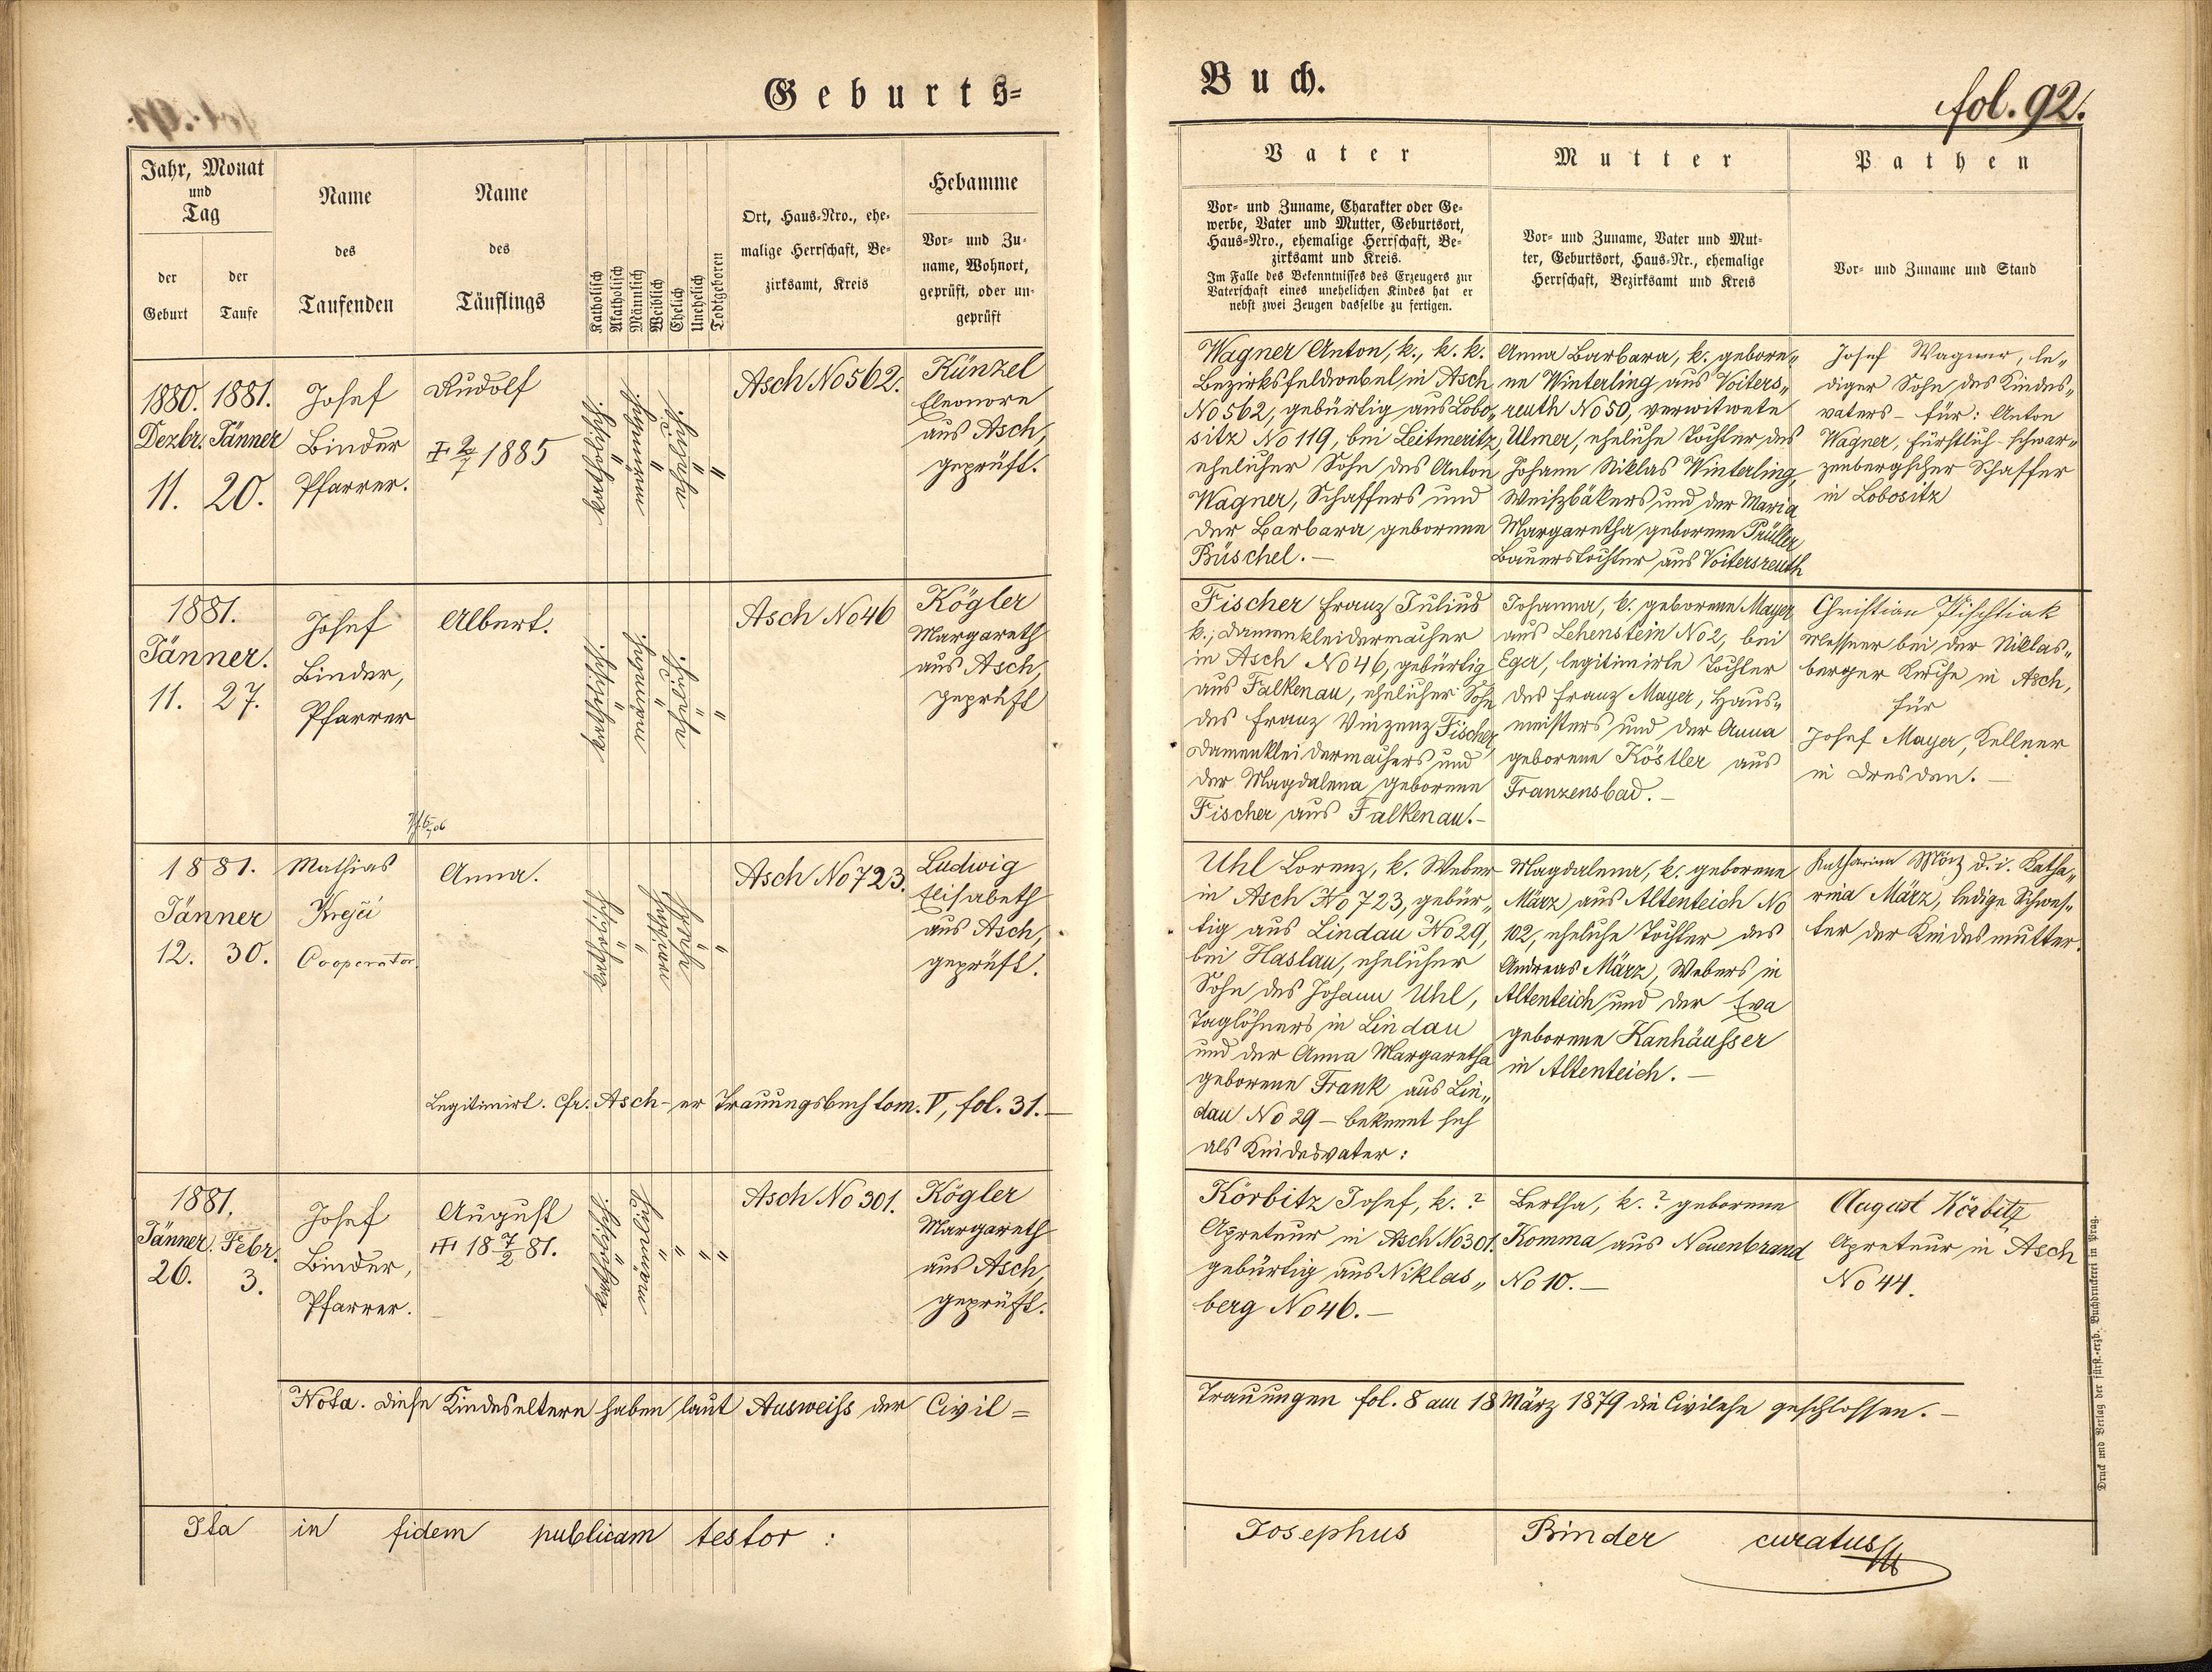 Geburts=
Buch.
fol. 92.
Jahr, Monat
und
Tag
der
Geburt
der
Taufe
Name
des
Taufenden
Name
des
Täuflings
Katholisch
Akatholisch
Männlich
Weiblich
Ehelich
Unehelich
Todtgeboren
Ort, Haus-Nro., ehe-
malige Herrschaft, Be-
zirksamt, Kreis
Hebamme
Vor- und Zu-
name, Wohnort,
geprüft, oder un-
geprüft
Vater
Vor- und Zuname, Charakter oder Ge-
werbe, Vater und Mutter, Geburtsort,
Haus-Nro., ehemalige Herrschaft, Be-
zirksamt und Kreis.
Im Falle des Bekenntnisses des Erzeugers zur
Vaterschaft eines unehelichen Kindes hat er
nebst zwei Zeugen dasselbe zu fertigen.
Mutter
Vor- und Zuname, Vater und Mut-
ter, Geburtsort, Haus-Nr., ehemalige
Herrschaft, Bezirksamt und Kreis
Pathen
Vor- und Zuname und Stand
1880. 1881.
Dezbr. Jänner
11. 20.
Josef
Binder
Pfarrer.
Rudolf
2/7 1885
katholisch.
"
männlich.
"
eheliche
"
"
Asch No 562.
Künzel
Eleonore
aus Asch,
geprüft.
Wagner Anton, k., k. k.
Bezirksfeldwebel in Asch
No 562, gebürtig aus Lobo"
sitz No 119, bei Leitmeritz,
ehelicher Sohn des Anton
Wagner, Schaffers und
der Barbara geborenen
Büschel. —
Anna Barbara, k. gebore"
ne Winterling aus Voiters"
reuth No 50, verwitwete
Ulmer, eheliche Tochter des
Johann Niklas Winterling,
Weißbäkers und der Maria
Margaretha geborenen Prüller
Bauerstochter aus Voitersreuth
Josef Wagner, le"
diger Sohn des Kindes"
vaters – für: Anton
Wagner, fürstlich-schwar"
zenbergscher Schaffer
in Lobositz
1881.
Jänner.
11. 27.
Josef
Binder,
Pfarrer
Albert.
katholisch.
"
männlich.
"
eheliche
"
"
Asch No 46
Kögler
Margareth
aus Asch,
geprüft
Fischer Franz Julius
k., Damenkleidermacher
in Asch No 46, gebürtig
aus Falkenau, ehelicher Sohn
des Franz Vinzenz Fischer
Damenkleidermachers und
der Magdalena geborenen
Fischer aus Falkenau. –
Johanna, k. geborene Mayer
aus Lehenstein No 2, bei
Eger, legitimirte Tochter
des Franz Mayer, Haus"
meisters und der Anna
geborene Köstler aus
Franzensbad. –
Christian
Messner bei der Niklas"
berger Kirche in Asch,
für
Josef Mayer, Kellner
in Dresden. —
1881.
Jänner
12. 30.
Mathias
Krejčí
Cooperator.
Anna.
katholisch
"
"
weiblich
eheliche
"
"
Asch No 723.
Ludwig
Elisabeth
aus Asch,
geprüft.
Legitimirt. Cfr. Asch-er Trauungsbuch tom. V, fol. 31. —
Uhl Lorenz, k. Weber
in Asch No 723, gebür"
tig aus Lindau No 29,
bei Haslau, ehelicher
Sohn des Johann Uhl,
Taglöhners in Lindau
und der Anna Margaretha
geborene Frank aus Lin"
dau No 29 – bekennt sich
als Kindesvater:
Magdalena, k. geborene
März, aus Altenteich No
102, eheliche Tochter des
Andreas März, Webers in
Altenteich und der Eva
geborene Kanhäusser
in Altenteich. —
Katharina März d. i. Katha"
rina März, ledige Schwes"
ter der Kindesmutter.
1881.
Jänner. Febr.
26. 3.
Josef
Binder,
Pfarrer.
August
18 7/2 81.
katholisch.
"
männlich
"
"
"
"
Asch No 301.
Kögler
Margareth
aus Asch,
geprüft.
Körbitz Josef, k. ?
Apreteur in Asch No 301.
gebürtig aus Niklas"
berg No 46. —
Bertha, k. ? geborene
Komma aus Neuenbrand
No 10. —
August Körbitz
Apreteur in Asch
No 44.
Nota. Diese Kindeseltern haben laut Ausweiss der Civil=
Trauungen fol. 8 am 18 März 1879 die Civilehe geschlossen. —
Ita in fidem publicam testor :
Josephus Binder curatus
Druck und Verlag der fürst.-erzb. Buchdruckerei in Prag.